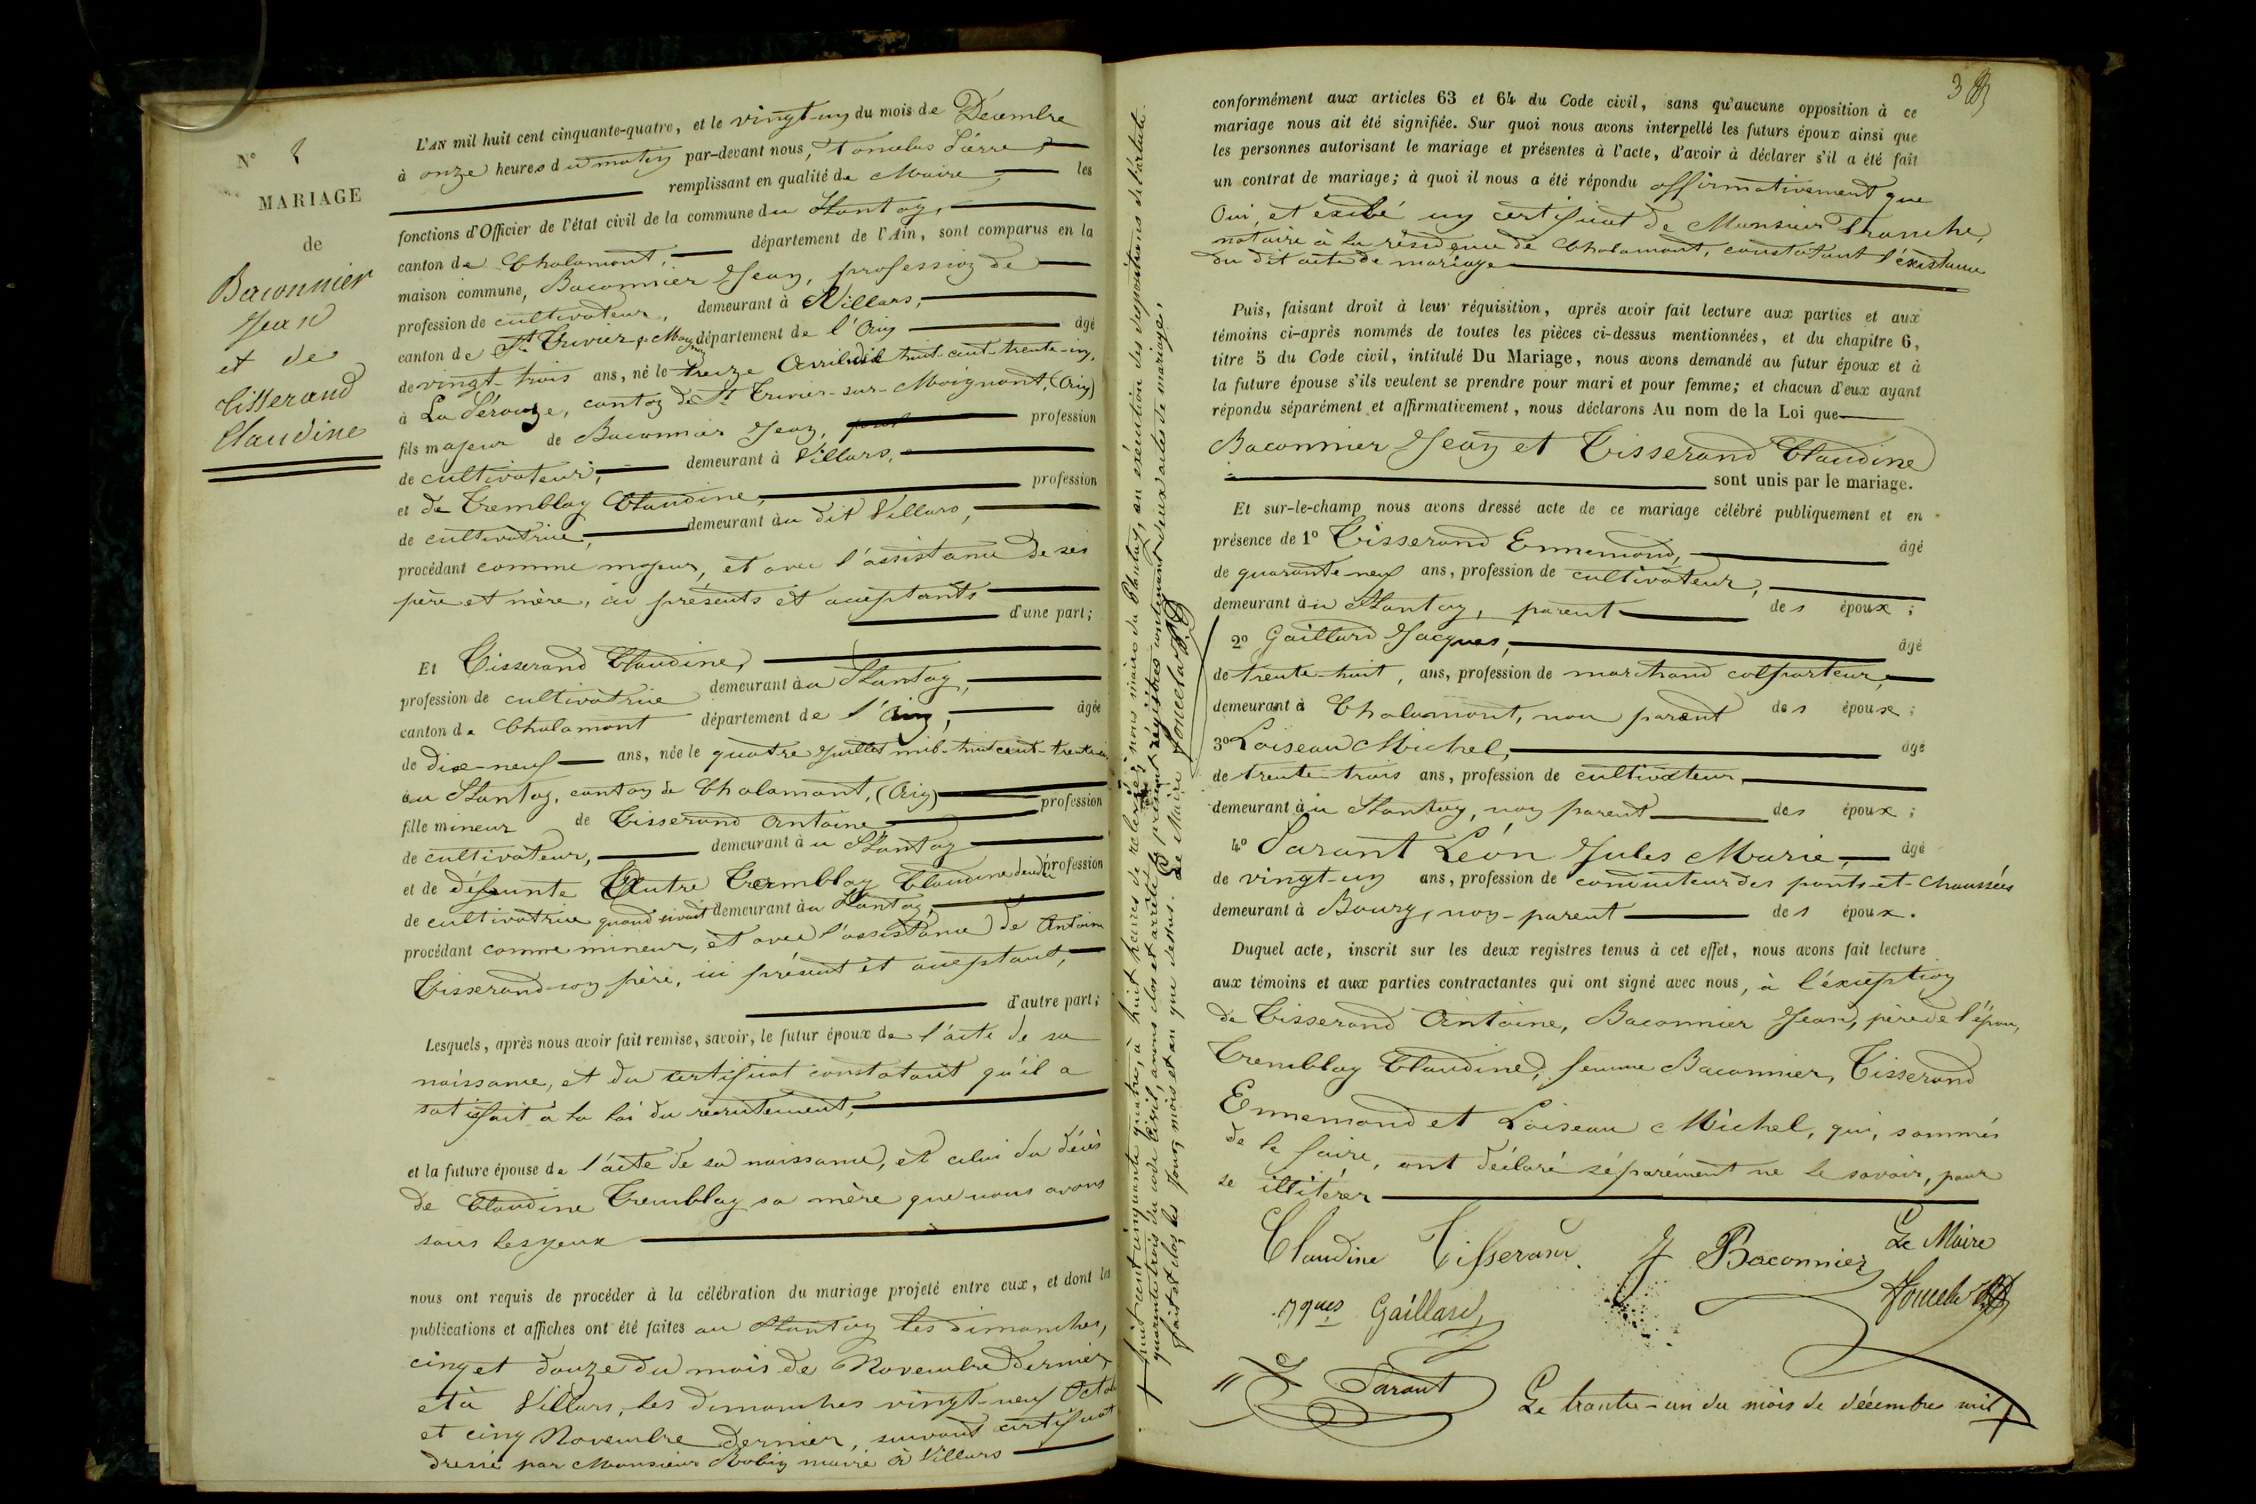 N° 8
MARIAGE
de
Baconnier
Jean
et de
Tisserand
Claudine
L'AN mil huit cent cinquante-quatre, et le vingt-un du mois de Décembre
à onze heures du matin par-devant nous, Pierre
remplissant en qualité de Maire les
fonctions d'Officier de l'état civil de la commune du Plantay,
canton de Chalamont, département de l'Ain, sont comparus en la
maison commune, Baconnier Jean, profession de
profession de cultivateur, demeurant à Villars,
canton de St Trivier s. Moig département de l'Ain âgé
de vingt-trois ans, né le treize Avril mil huit-cent-trente-un,
à La Pérouze, canton de St Trivier-sur-Moignant, (Ain)
fils majeur de Baconnier Jean, profession
de cultivateur, demeurant à Villars,
et de Tremblay Claudine, profession
de cultivatrice, demeurant au dit Villars,
procédant comme majeur, et avec l'assistance de ses
père et mère, ici présents et acceptants
d'une part;
Et Tisserand Claudine,
profession de cultivatrice demeurant au Plantay,
canton de Chalamont département de l'Ain, âgée
de dix-neuf ans, née le quatre Juillet mil-huit cent-trente-cinq
au Plantay, canton de Chalamont, (Ain)
fille mineur de Tisserand Antoine profession
de cultivateur, demeurant au Plantay
et de défunte Autre Tremblay Claudine profession
de cultivatrice quand vivait demeurant au Plantay,
procédant comme mineur, et avec l'assistance de Antoine
Tisserand son père, ici présent et acceptant,
d'autre part;
Lesquels, après nous avoir fait remise, savoir, le futur époux de l'acte de sa
naissance, et du certificat constatant qu'il a
satisfait à la loi du recrutement,
et la future épouse de l'acte de sa naissance, et celui du décès
de Claudine Tremblay sa mère que nous avons
sous les yeux
nous ont requis de procéder à la célébration du mariage projeté entre eux, et dont les
publications et affiches ont été faites au Plantay les dimanches,
cinq et douze du mois de Novembre dernier,
et à Villars, les dimanches vingt-neuf Octobre
et cinq Novembre dernier, suivant certificat
dressé par Monsieur Robin maire à Villars
conformément aux articles 63 et 64 du Code civil, sans qu'aucune opposition à ce
mariage nous ait été signifiée. Sur quoi nous avons interpellé les futurs époux ainsi que
les personnes autorisant le mariage et présentes à l'acte, d'avoir à déclarer s'il a été fait
un contrat de mariage; à quoi il nous a été répondu affirmativement que
Oui, et exibé un certificat de Monsieur Tranche,
notaire à la résidence de Chalamont, constatant l'existence
du dit acte de mariage
Puis, faisant droit à leur réquisition, après avoir fait lecture aux parties et aux
témoins ci-après nommés de toutes les pièces ci-dessus mentionnées, et du chapitre 6,
titre 5 du Code civil, intitulé Du Mariage, nous avons demandé au futur époux et à
la future épouse s'ils veulent se prendre pour mari et pour femme; et chacun d'eux ayant
répondu séparément et affirmativement, nous déclarons Au nom de la Loi que
Baconnier Jean et Tisserand Claudine
sont unis par le mariage.
Et sur-le-champ nous avons dressé acte de ce mariage célébré publiquement et en
présence de 1° Tisserand Ennemond, âgé
de quarante neuf ans, profession de cultivateur,
demeurant au Plantay, parent des époux;
2° Gaillard Jacques, âgé
de trente-huit, ans, profession de marchand colporteur,
demeurant à Chalamont, non parent des époux;
3° Loiseau Michel, âgé
de trente-trois ans, profession de cultivateur,
demeurant au Plantay, non parent des époux;
4° Parant Léon Jules Marie, âgé
de vingt-un ans, profession de conducteur des ponts-et-Chaussées
demeurant à Bourg, non-parent des époux.
Duquel acte, inscrit sur les deux registres tenus à cet effet, nous avons fait lecture
aux témoins et aux parties contractantes qui ont signé avec nous, à l'exception
de Tisserand Antoine, Baconnier Jean, père de l'époux,
Tremblay Claudine, femme Baconnier, Tisserand
Ennemond et Loiseau Michel, qui, sommés
de le faire, ont déclaré séparément ne le savoir, pour
se illitérer
Claudine Tisserand. J Baconnier Le Maire
Jques Gaillard
Parant
Le trente-un du mois de décembre mil
huit cent cinquante quatre, à huit heures de relevée, nous maire du Plantay, en exécution des dispositions de l'article
quarante trois du code Civil, avons clos et arrêté le présent régistre contenant deux actes de mariage,
fait et clos les jour, mois et an que dessus. Le Maire